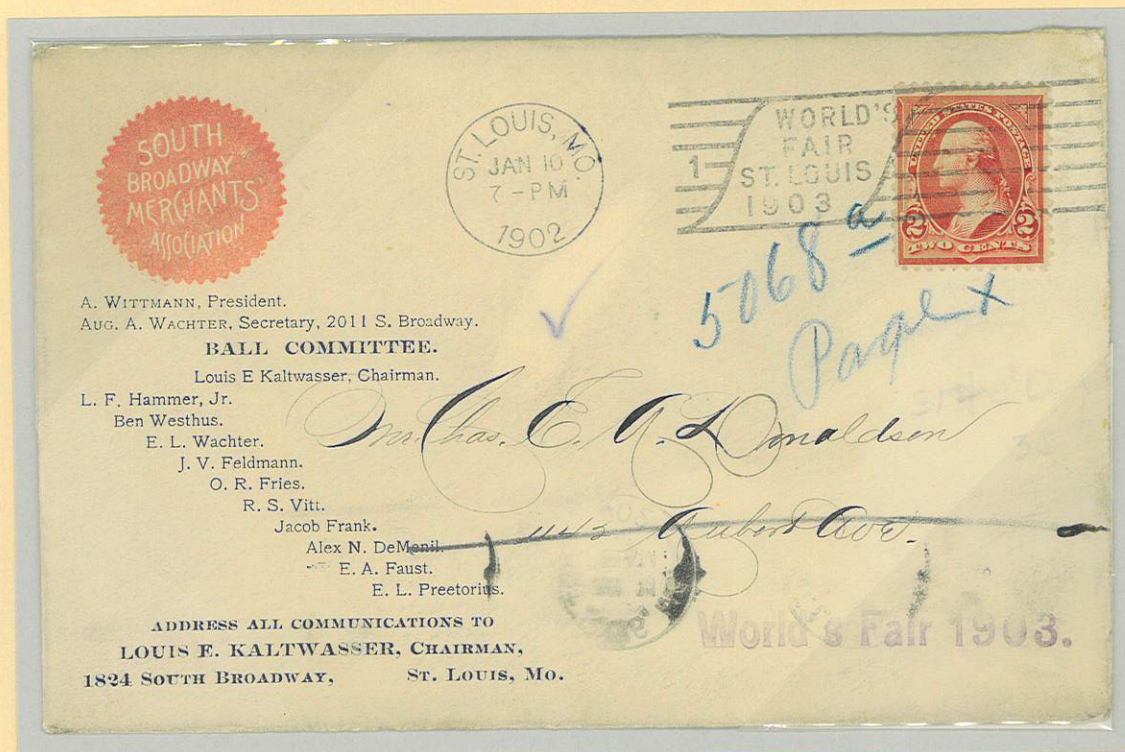 SOUTH
BROADWAY
MERCHANTS'
ASSOCIATION
ST. LOUIS, MO.
JAN 10
7-PM
1902
1
WORLD'S
FAIR
ST. LOUIS
1903
UNITED STATES POSTAGE
2 2
TWO CENTS
5068 a
Page x
A. WITTMANN, President.
AUG. A. WACHTER, Secretary, 2011 S. Broadway.
BALL COMMITTEE.
Louis E Kaltwasser, Chairman.
L. F. Hammer, Jr.
Ben Westhus.
E. L. Wachter.
J. V. Feldmann.
O. R. Fries.
R. S. Vitt.
Jacob Frank.
Alex N. DeMenil.
E. A. Faust.
E. L. Preetorius.
ADDRESS ALL COMMUNICATIONS TO
LOUIS E. KALTWASSER, CHAIRMAN,
1824 SOUTH BROADWAY, ST. LOUIS, MO.
Mr. Chas. E. A. Donaldson
Aubert Ave.
World's Fair 1903.